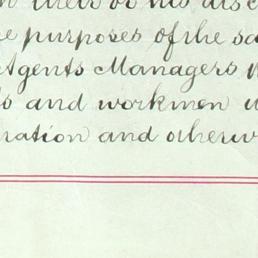 their or his disc
e purposes of the sa
Agents Managers
ts and workmen
ration and otherw